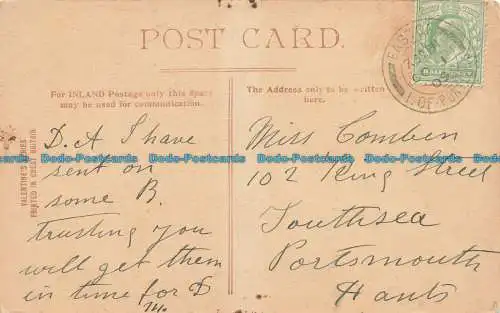 POST CARD.
For INLAND Postage only this Space may be used for communication.
The Address only to be written here.
VALENTINE'S SERIES
PRINTED IN GREAT BRITAIN
HALF PENNY
D. A I have
sent on
some B.
trusting you
will get them
in time for D
14.
Miss Comben
102 King Street
Southsea
Portsmouth
Hants
Dodo-Postcards Dodo-Postcards Dodo-Postcards Dodo-Postcards Dodo-Postcards